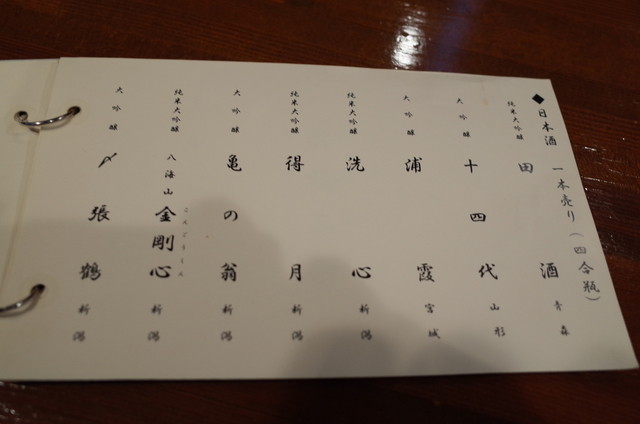 ◆日本酒 一本売り(四合瓶)
純米大吟醸 田酒 青森
大吟醸 十四代 山形
大吟醸 浦霞 宮城
純米大吟醸 洗心 新潟
純米大吟醸 得月 新潟
大吟醸 亀の翁 新潟
純米大吟醸 八海山 金剛心 新潟
こんごうしん
大吟醸 〆張鶴 新潟